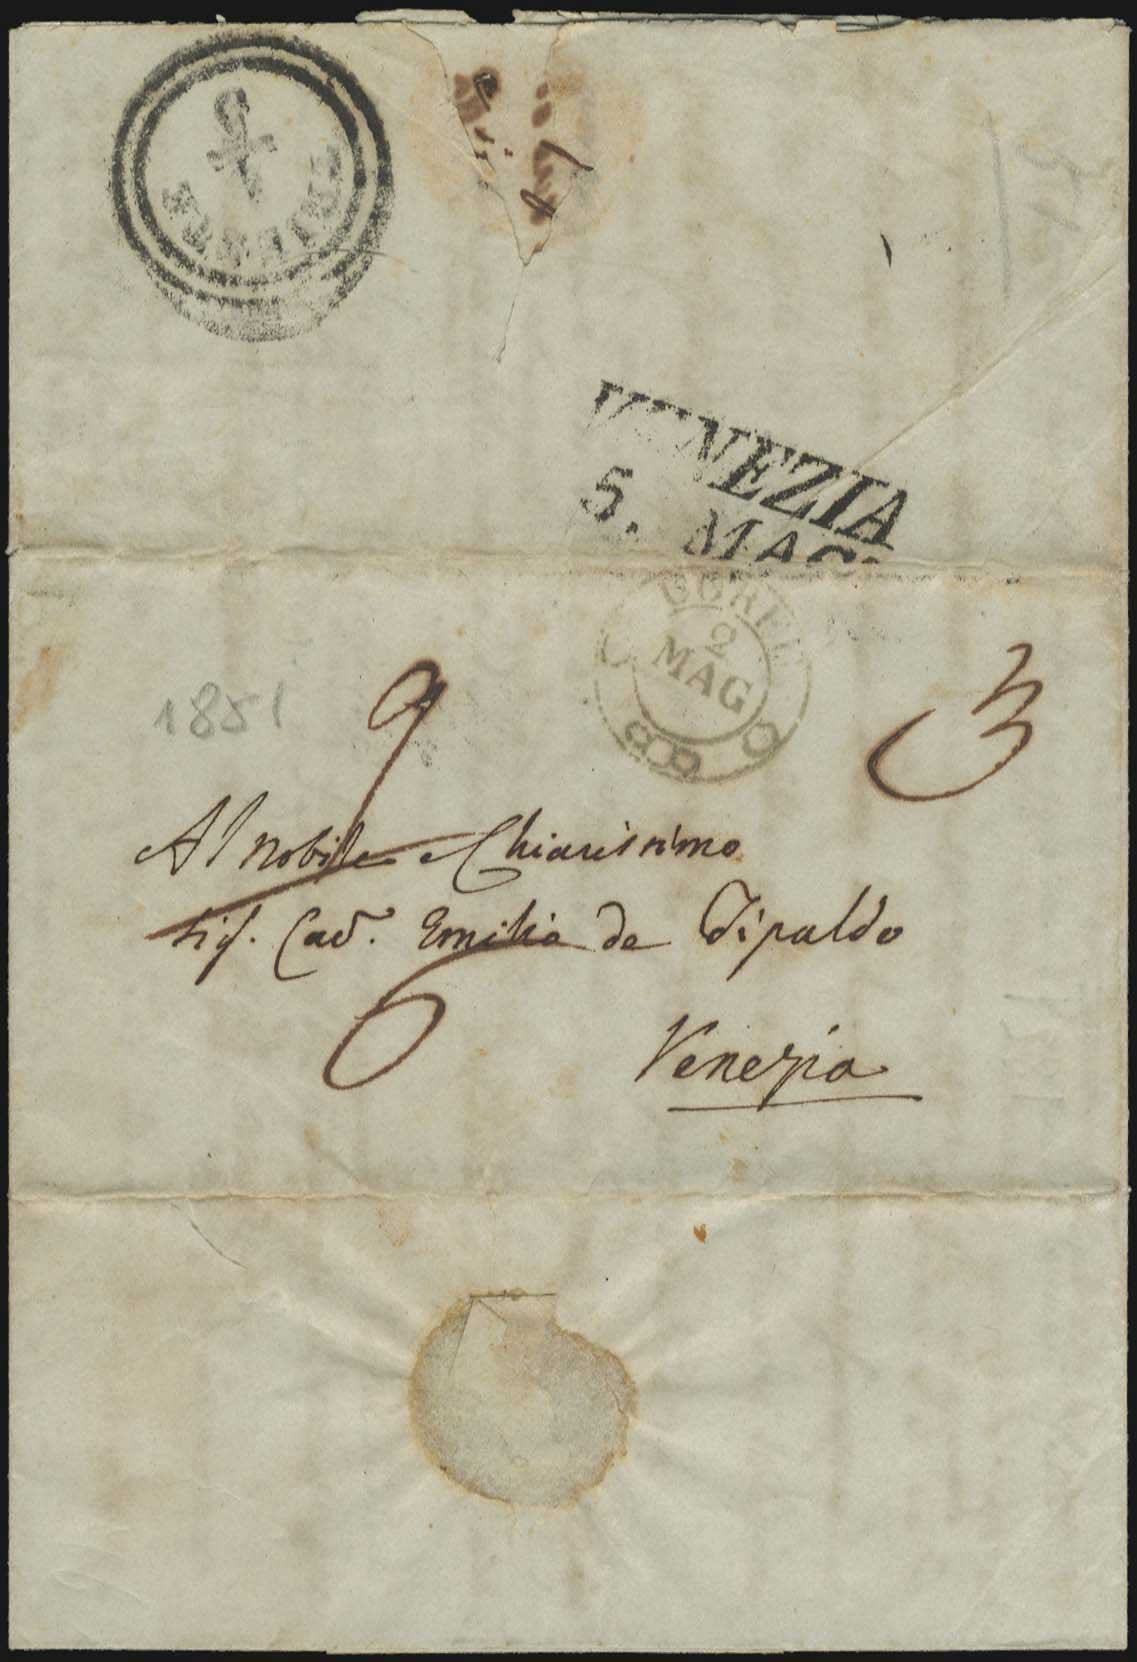 VENEZIA
5. MAG
2
MAG
1851
9
3
Al Nobile e Chiarissimo
Sig. Cav. Emilio de Tipaldo
6
Venezia